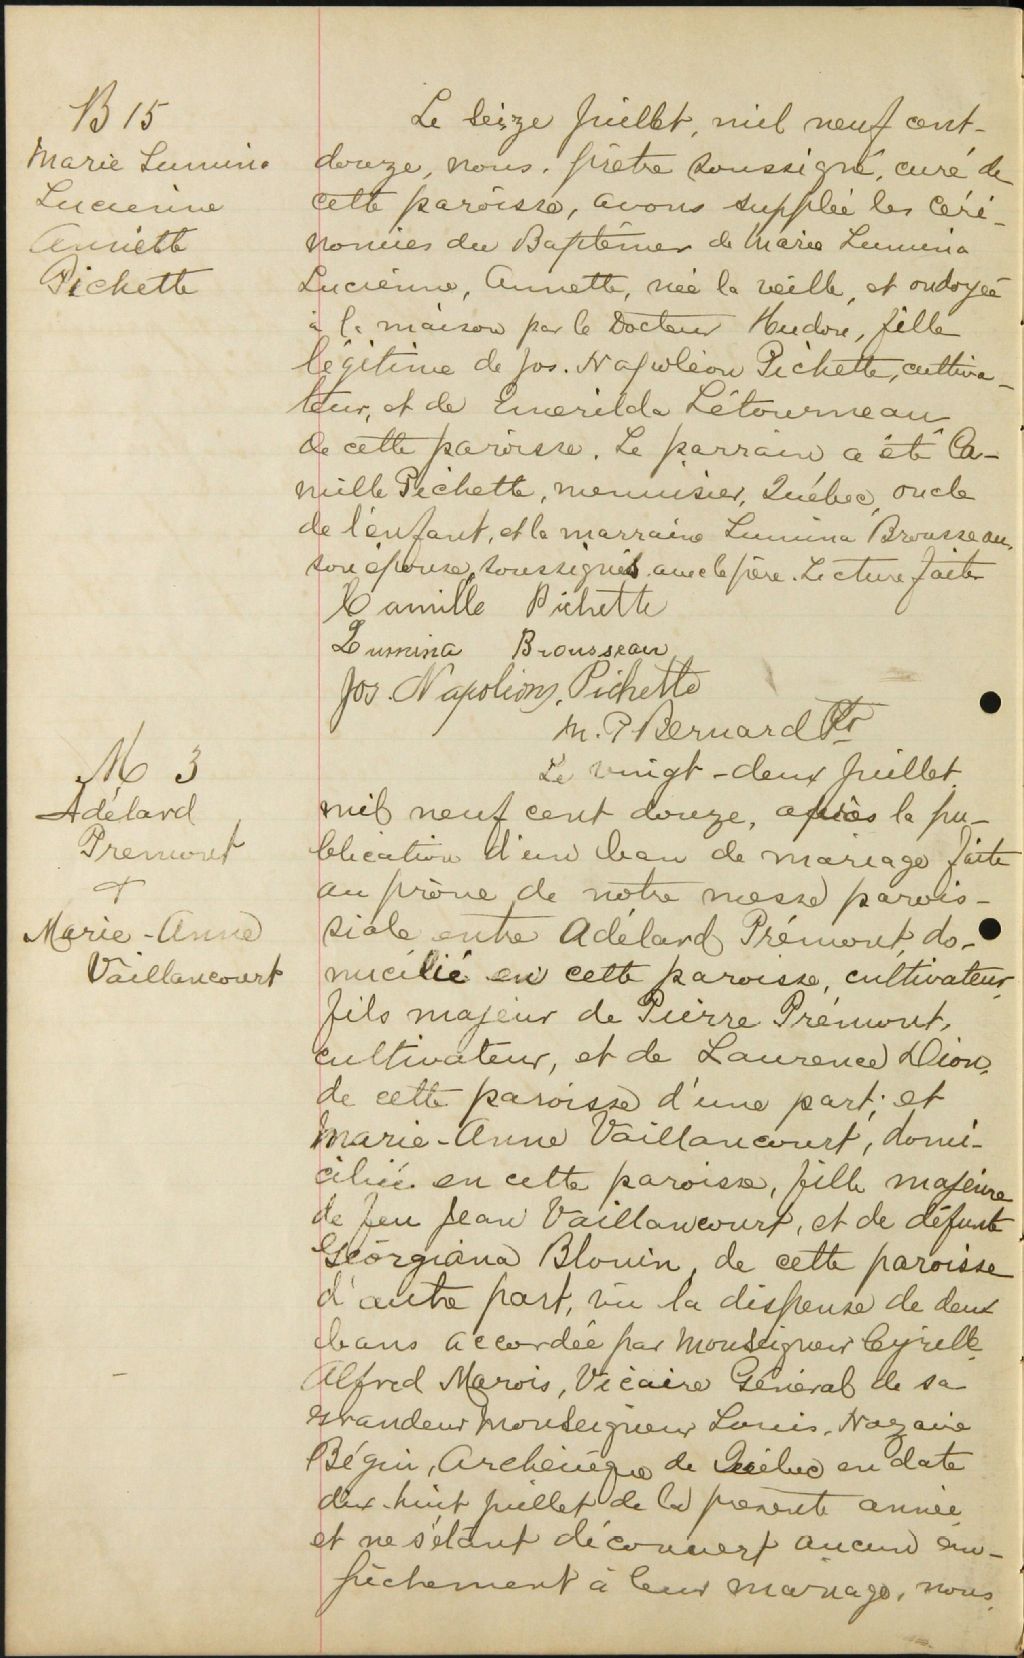 B 15
Marie Lumina
Lucienne
Annette
Pichette
Le seize juillet, mil neuf cent-
douze, nous, prêtre soussigné, curé de
cette paroisse, avons suppléé les céré-
monies du Baptême de Marie Lumina
Lucienne, Annette, née la veille, et ondoyée
à la maison par le Docteur Hudon, fille
légitime de Jos. Napoléon Pichette, cultiva-
teur, et de Emerilda Létourneau
de cette paroisse. Le parrain a été Ca-
mille Pichette, menuisier, Québec, oncle
de l'enfant, et la marraine Lumina Brousseau,
son épouse, soussignés avec le père. Lecture faite
Camille Pichette
Lumina Brousseau
Jos. Napolion, Pichette
M. P. Bernard Ptr
M 3
Adélard
Premont
+
Marie-Anne
Vaillancourt
Le vingt-deux juillet
mil neuf cent douze, après la pu-
blication d'un ban de mariage faite
au prône de notre messe parois-
siale entre Adélard Prémont, do-
micilié en cette paroisse, cultivateur,
fils majeur de Pierre Prémont,
cultivateur, et de Laurence Dion,
de cette paroisse d'une part; et
Marie-Anne Vaillancourt, domi-
ciliée en cette paroisse, fille majeure
de feu Jean Vaillancourt, et de défunte
Géorgiana Blouin, de cette paroisse
d'autre part, vu la dispense de deux
bans accordée par Monseigneur Cyrille
Alfred Marois, Vicaire Général de sa
grandeur Monseigneur Louis-Nazaire
Bégin, Archevêque de Québec en date
dix-huit juillet de la présente année
et ne s'étant découvert aucun em-
pêchement à leur mariage, nous,